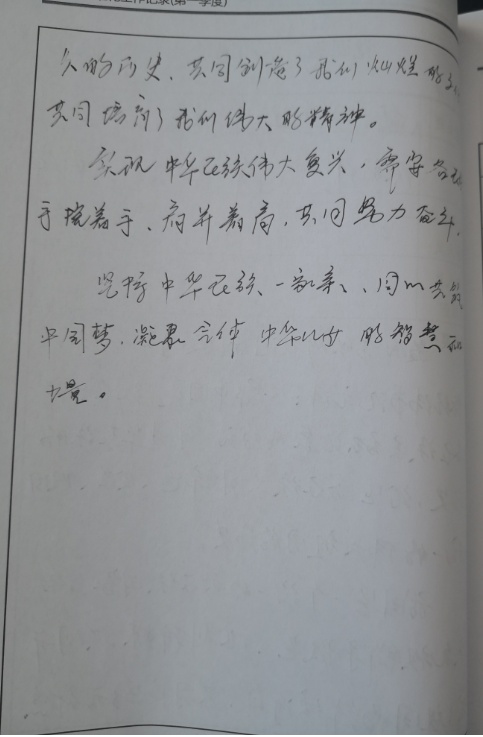 工作记录(第一季度)
久的历史、共同创造了我们灿烂的文
共同培育了我们伟大的精神。
实现中华民族伟大复兴，需要各族
手挽着手、肩并着肩，共同努力奋斗，
坚持中华民族一家亲、同心共筑
中国梦，凝聚全体中华儿女的智慧和
力量。